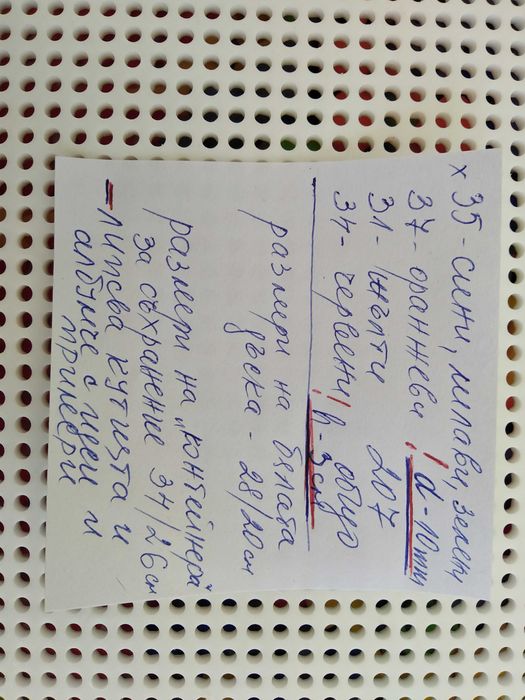 х 35 - сини, лилави, зелени,
37 - оранжеви ! d - 10 mm
31 - жълти 207
34 - червени ! h - 3 см общо
размери на бялата
дъска - 28/20 см
размери на "контейнера"
за съхранение 34/26 см
- Липсва кутията и
албумче с идеи и
примери